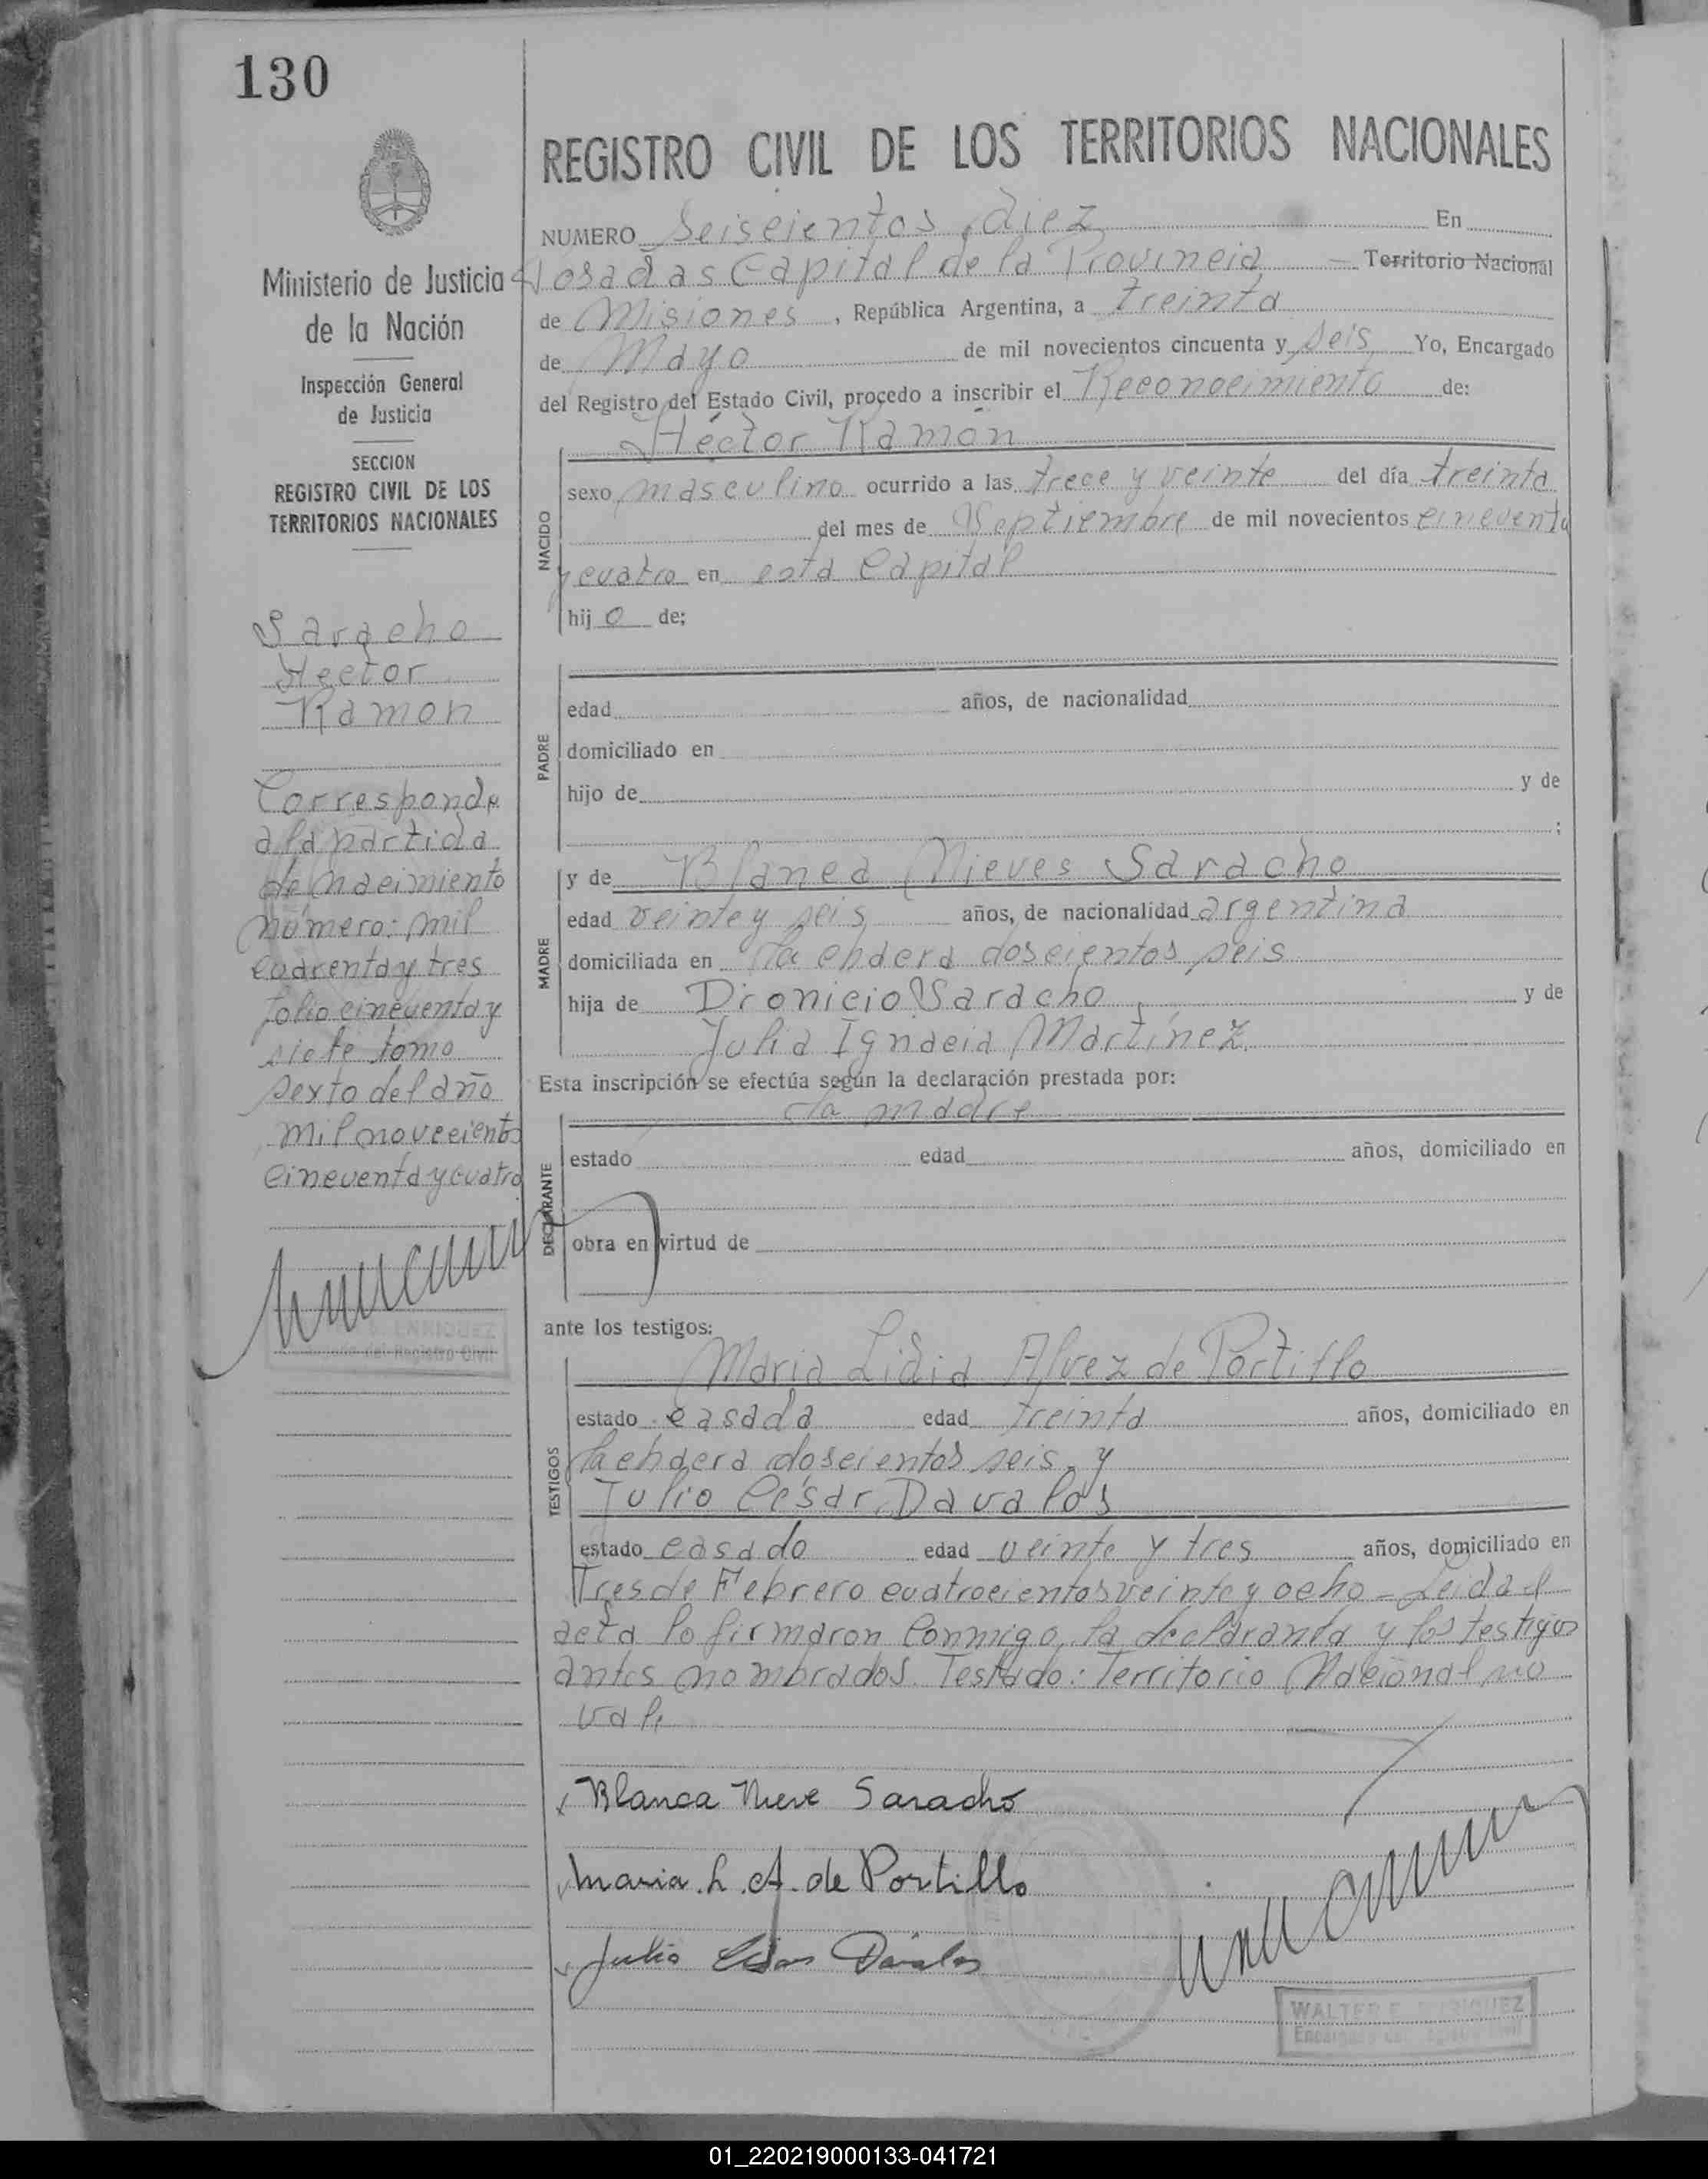 130
REGISTRO CIVIL DE LOS TERRITORIOS NACIONALES
Ministerio de Justicia
de la Nación
Inspección General
de Justicia
SECCION
REGISTRO CIVIL DE LOS
TERRITORIOS NACIONALES
Saracho
Hector
Ramon
Corresponde
a la partida
de nacimiento
número: mil
cuarenta y tres
folio cincuenta y
siete tomo
sexto del año
mil novecientos
cincuenta y cuatro
E. ENRIQUEZ
del Registro Civil
NUMERO Seiscientos diez En
Posadas Capital de la Provincia — Territorio Nacional
de Misiones, República Argentina, a treinta
de Mayo de mil novecientos cincuenta y seis Yo, Encargado
del Registro del Estado Civil, procedo a inscribir el Reconocimiento de:
Héctor Ramón
NACIDO
sexo masculino ocurrido a las trece y veinte del día treinta
del mes de Septiembre de mil novecientos cincuenta
y cuatro en esta Capital
hijo de;
PADRE
edad años, de nacionalidad
domiciliado en
hijo de y de
;
MADRE
y de Blanca Nieves Saracho
edad veinte y seis años, de nacionalidad argentina
domiciliada en La chacra doscientos seis
hija de Dionicio Saracho y de
Julia Ignacia Martínez
Esta inscripción se efectúa según la declaración prestada por:
La madre
DECLARANTE
estado edad años, domiciliado en
obra en virtud de
ante los testigos:
TESTIGOS
Maria Lidia Alvez de Portillo
estado casada edad treinta años, domiciliado en
La chacra doscientos seis y
Julio César Davalos
estado casado edad veinte y tres años, domiciliado en
Tres de Febrero cuatrocientos veinte y ocho - Leida el
acta lo firmaron conmigo, la declaranta y los testigos
antes nombrados. Testado: Territorio Nacional no
vale
Blanca Nieve Saracho
Maria. L. A. de Portillo
Julio César Dávalos
WALTER E. ENRIQUEZ
Encargado del Registro Civil
01_220219000133-041721